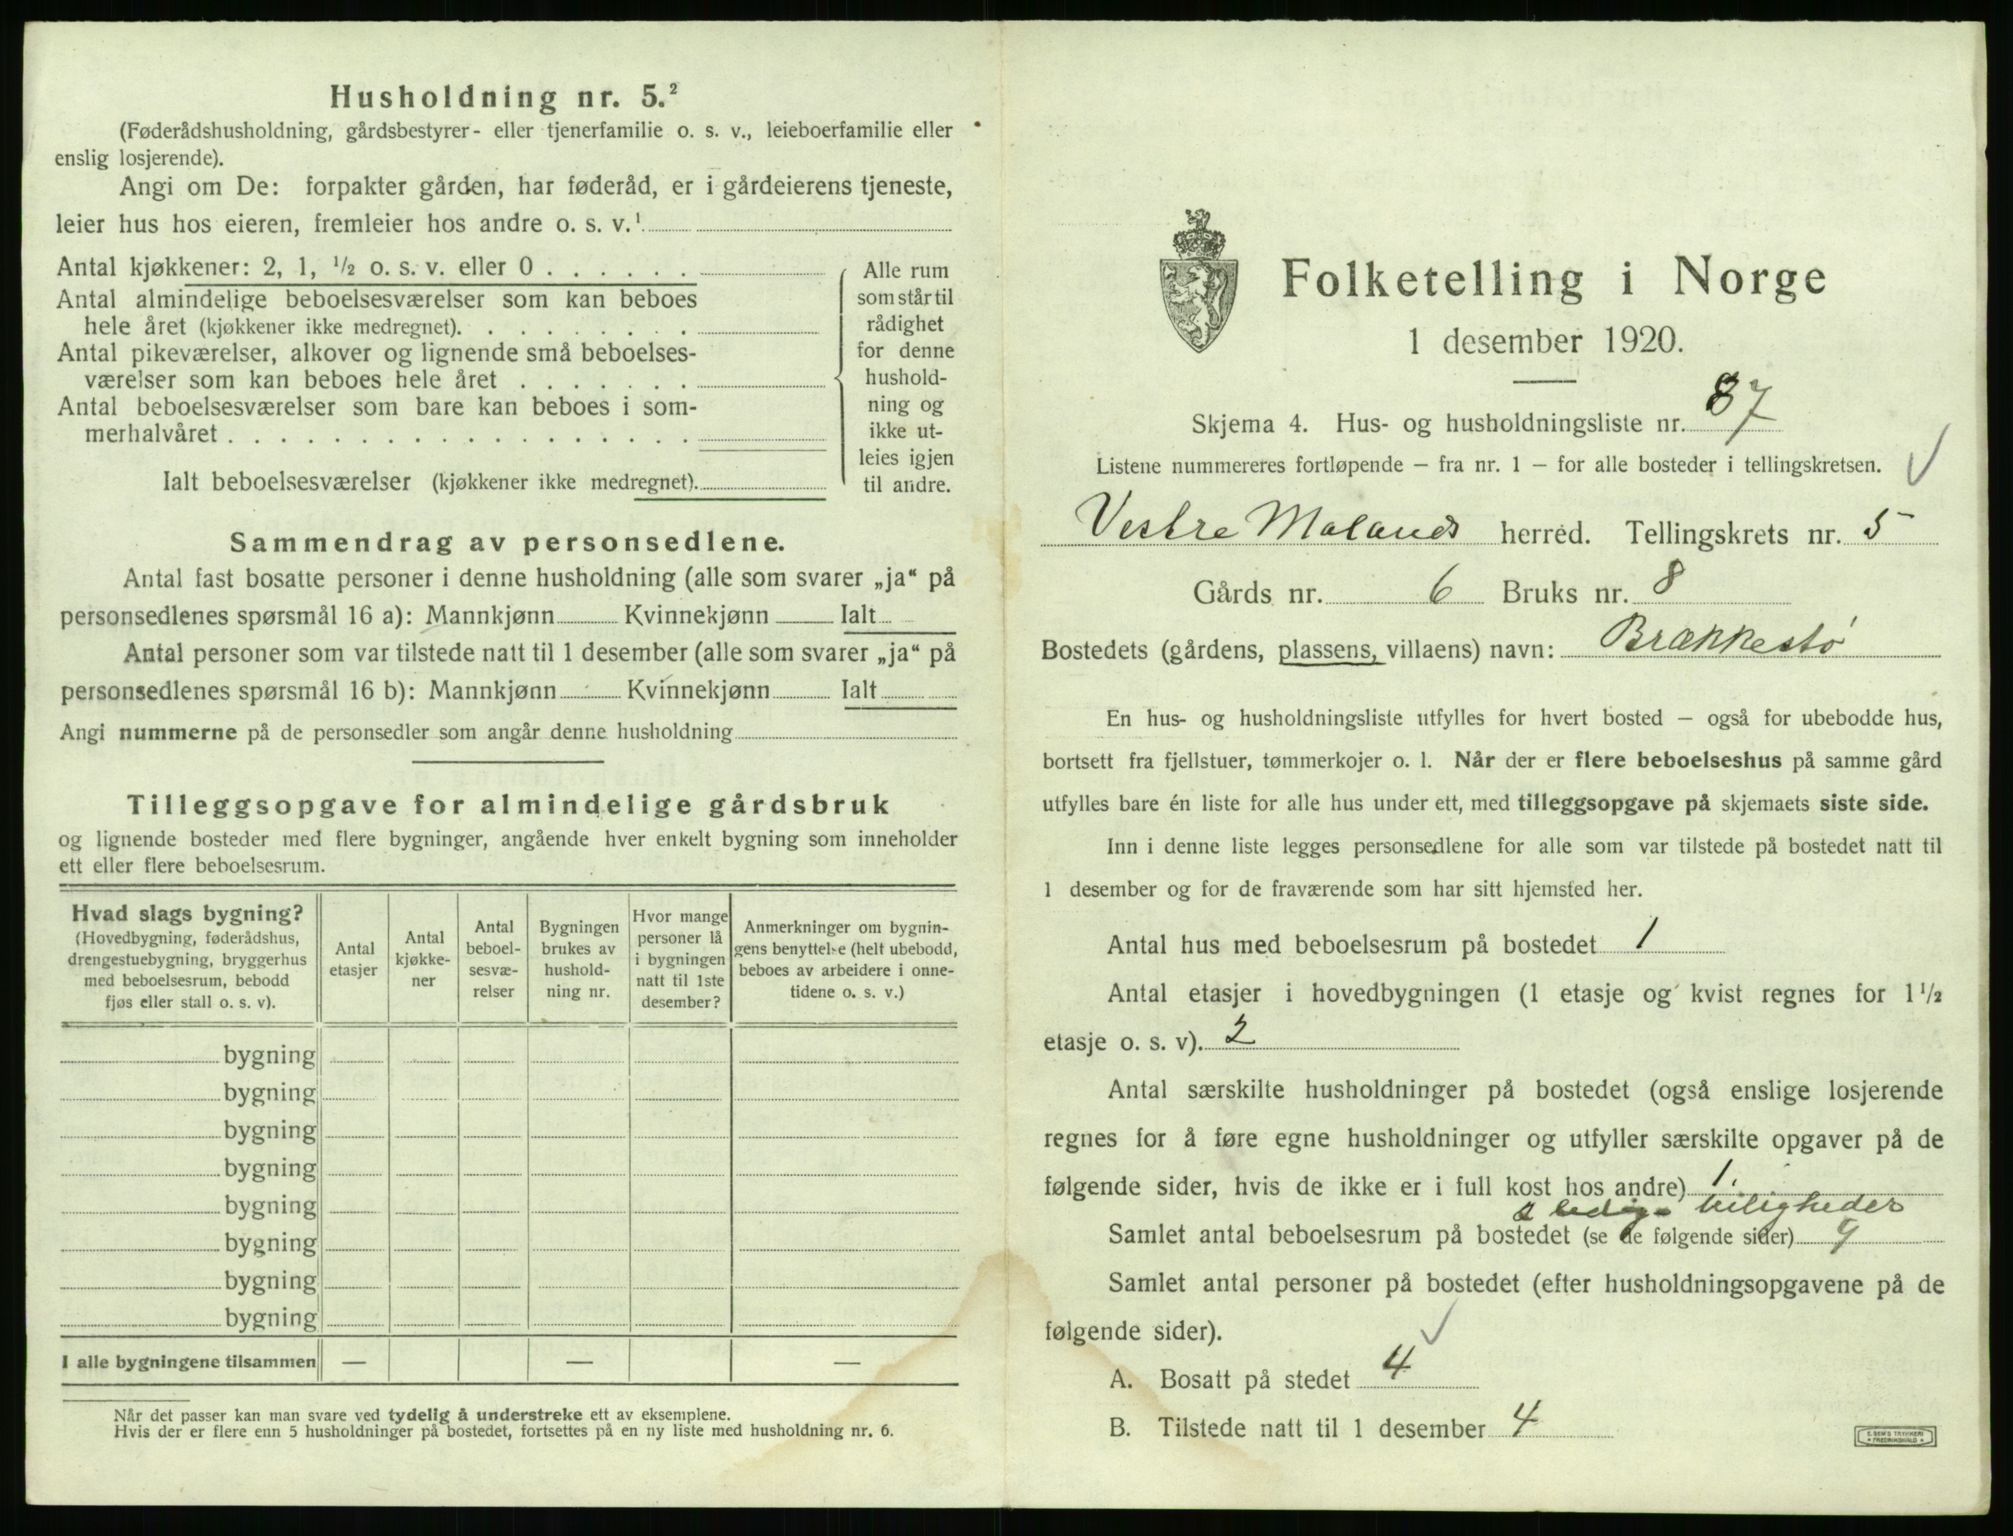 Husholdning nr. 5.²
(Føderådshusholdning, gårdsbestyrer- eller tjenerfamilie o. s. v., leieboerfamilie eller
enslig losjerende).
Angi om De: forpakter gården, har føderåd, er i gårdeierens tjeneste,
leier hus hos eieren, fremleier hos andre o. s. v.¹
Antal kjøkkener: 2, 1, ½ o. s. v. eller 0 . . . . . .
Antal almindelige beboelsesværelser som kan beboes
hele året (kjøkkener ikke medregnet). . . . . . . . .
Antal pikeværelser, alkover og lignende små beboelses-
værelser som kan beboes hele året . . . . . . .
Antal beboelsesværelser som bare kan beboes i som-
merhalvåret . . . . . . . . . . . . . . . . . .
Ialt beboelsesværelser (kjøkkener ikke medregnet).
Alle rum
som står til
rådighet
for denne
hushold-
ning og
ikke ut-
leies igjen
til andre.
Sammendrag av personsedlene.
Antal fast bosatte personer i denne husholdning (alle som svarer „ja“ på
personsedlenes spørsmål 16 a): Mannkjønn Kvinnekjønn Ialt
Antal personer som var tilstede natt til 1 desember (alle som svarer „ja“ på
personsedlenes spørsmål 16 b): Mannkjønn Kvinnekjønn Ialt
Angi nummerne på de personsedler som angår denne husholdning
Tilleggsopgave for almindelige gårdsbruk
og lignende bosteder med flere bygninger, angående hver enkelt bygning som inneholder
ett eller flere beboelsesrum.
Hvad slags bygning?
(Hovedbygning, føderådshus,
drengestuebygning, bryggerhus
med beboelsesrum, bebodd
fjøs eller stall o. s. v).
Antal
etasjer
Antal
kjøkke-
ner
Antal
beboel-
sesvæ-
relser
Bygningen
brukes av
hushold-
ning nr.
Hvor mange
personer lå
i bygningen
natt til 1ste
desember?
Anmerkninger om bygnin-
gens benyttelse (helt ubebodd,
beboes av arbeidere i onne-
tidene o. s. v.)
bygning
bygning
bygning
bygning
bygning
bygning
bygning
bygning
I alle bygningene tilsammen — — —
Når det passer kan man svare ved tydelig å understreke ett av eksemplene.
Hvis der er flere enn 5 husholdninger på bostedet, fortsettes på en ny liste med husholdning nr. 6.
Folketelling i Norge
1 desember 1920.
Skjema 4. Hus- og husholdningsliste nr. 87
Listene nummereres fortløpende — fra nr. 1 — for alle bosteder i tellingskretsen.
Vestre Molands herred. Tellingskrets nr. 5
Gårds nr. 6 Bruks nr. 8
Bostedets (gårdens, plassens, villaens) navn: Brækkestø
En hus- og husholdningsliste utfylles for hvert bosted — også for ubebodde hus,
bortsett fra fjellstuer, tømmerkojer o. l. Når der er flere beboelseshus på samme gård
utfylles bare én liste for alle hus under ett, med tilleggsopgave på skjemaets siste side.
Inn i denne liste legges personsedlene for alle som var tilstede på bostedet natt til
1 desember og for de fraværende som har sitt hjemsted her.
Antal hus med beboelsesrum på bostedet 1
Antal etasjer i hovedbygningen (1 etasje og kvist regnes for 1½
etasje o. s. v). 2
Antal særskilte husholdninger på bostedet (også enslige losjerende
regnes for å føre egne husholdninger og utfyller særskilte opgaver på de
følgende sider, hvis de ikke er i full kost hos andre) 1.
2 ledige beiligheder
Samlet antal beboelsesrum på bostedet (se de følgende sider) 9
Samlet antal personer på bostedet (efter husholdningsopgavene på de
følgende sider).
A. Bosatt på stedet 4
B. Tilstede natt til 1 desember 4
E. SEM'S TRYKKERI
FREDRIKSHALD